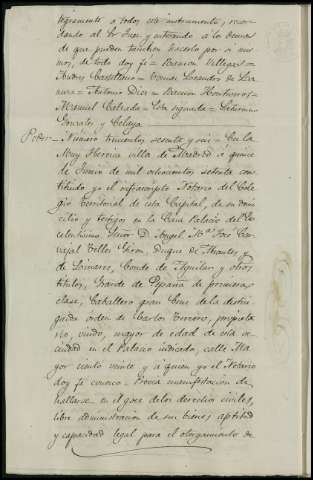 tegramente a todos este instrumento, 
dando al Sr Juez y enterando a los demas
de que pueden tambien hacerlo por si mis-
mos, de todo doy fe = Ramon Villegas =
Andres Castellano = Tomas Lozandes de La
= Antonio Diez = Ramon Montueros =
Manuel Calzada = Esta signado = Zeferino
Gonzalez y Celaya
Poder = Numero trescientos sesenta y seis = En la
Muy Heroica villa de Madrid á quince
de Junio de mil ochocientos setenta cons-
tituido yo el infrascripto Notario del Cole-
gio Territorial de esta Capital, de su domi-
cilio y testigos en la Casa Palacio del Ex-
celentisimo Señor D. Angel Mª Jose Car-
vajal Tellez Giron, Duque de Abrantes y
de Linares, Conde de Aguilar y otros
titulos, Grande de España de primera
clase, Caballero gran Cruz de la distin-
guida orden de Carlos tercero, propieta-
rio, viudo, mayor de edad de esta ve-
cindad en el Palacio indicado, calle Ma-
yor ciento veinte y á quien yo el Notario
doy fe conozco = Previa manifestacion de
hallarse en el goce de los derechos civiles,
libre administracion de sus bienes, aptitud
y capacidad legal para el otorgamiento de